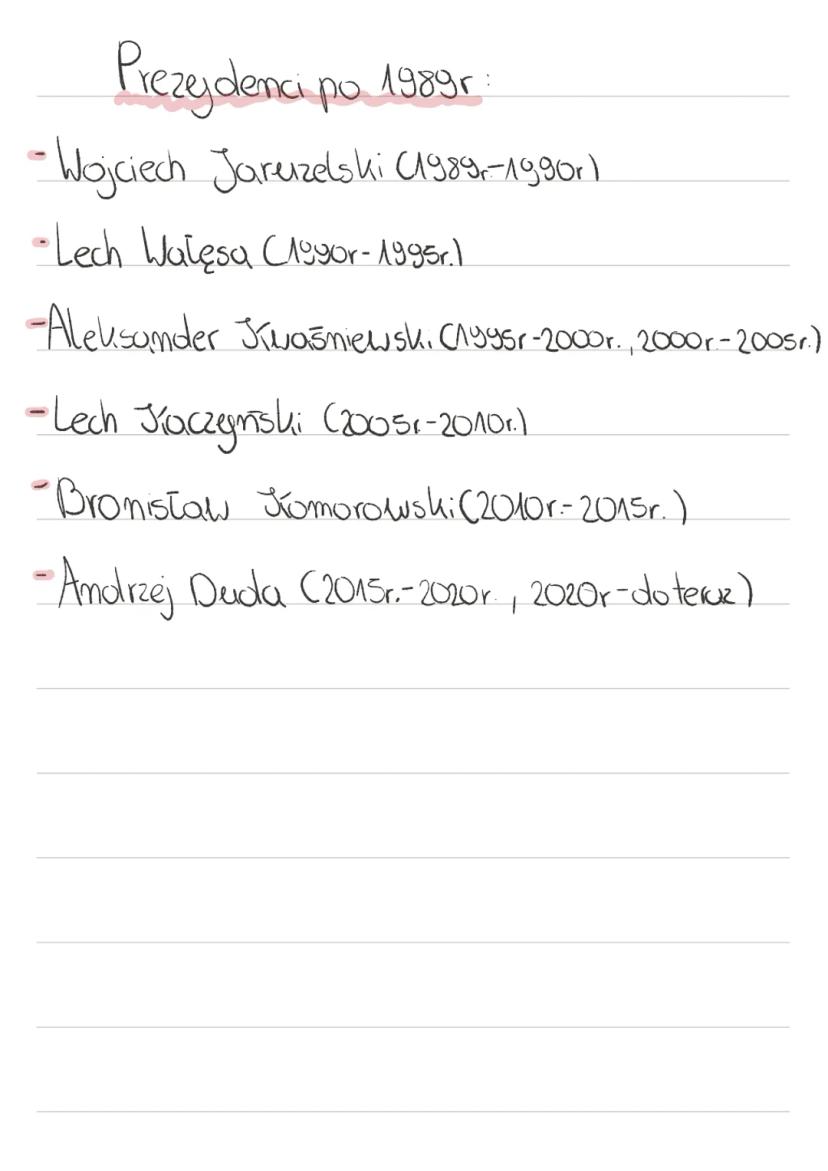 Prezydenci po 1989r:
- Wojciech Jaruzelski (1989r.-1990r)
- Lech Wałęsa (1990r-1995r.)
- Aleksander Kwaśniewski (1995r-2000r., 2000r.-2005r.)
- Lech Kaczyński (2005r-2010r.)
- Bronisław Komorowski (2010r.-2015r.)
- Andrzej Duda (2015r.-2020r., 2020r-do teraz)